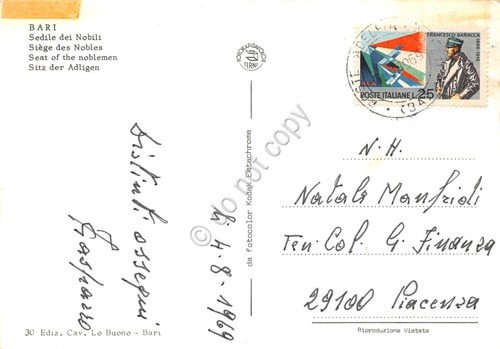 BARI
Sedile dei Nobili
Siège des Nobles
Seat of the noblemen
Sitz der Adligen
FRANCESCO BARACCA
POSTE ITALIANE L. 25
Distinti ossequi
Gasparro
lì 4-8-1969
da fotocolor Kodak Ektachrome
N.H.
Natale Manfridi
Ten Col. G. Finanza
29100 Piacenza
30 Ediz. Cav. Lo Buono - Bari
Riproduzione Vietata
do not copy